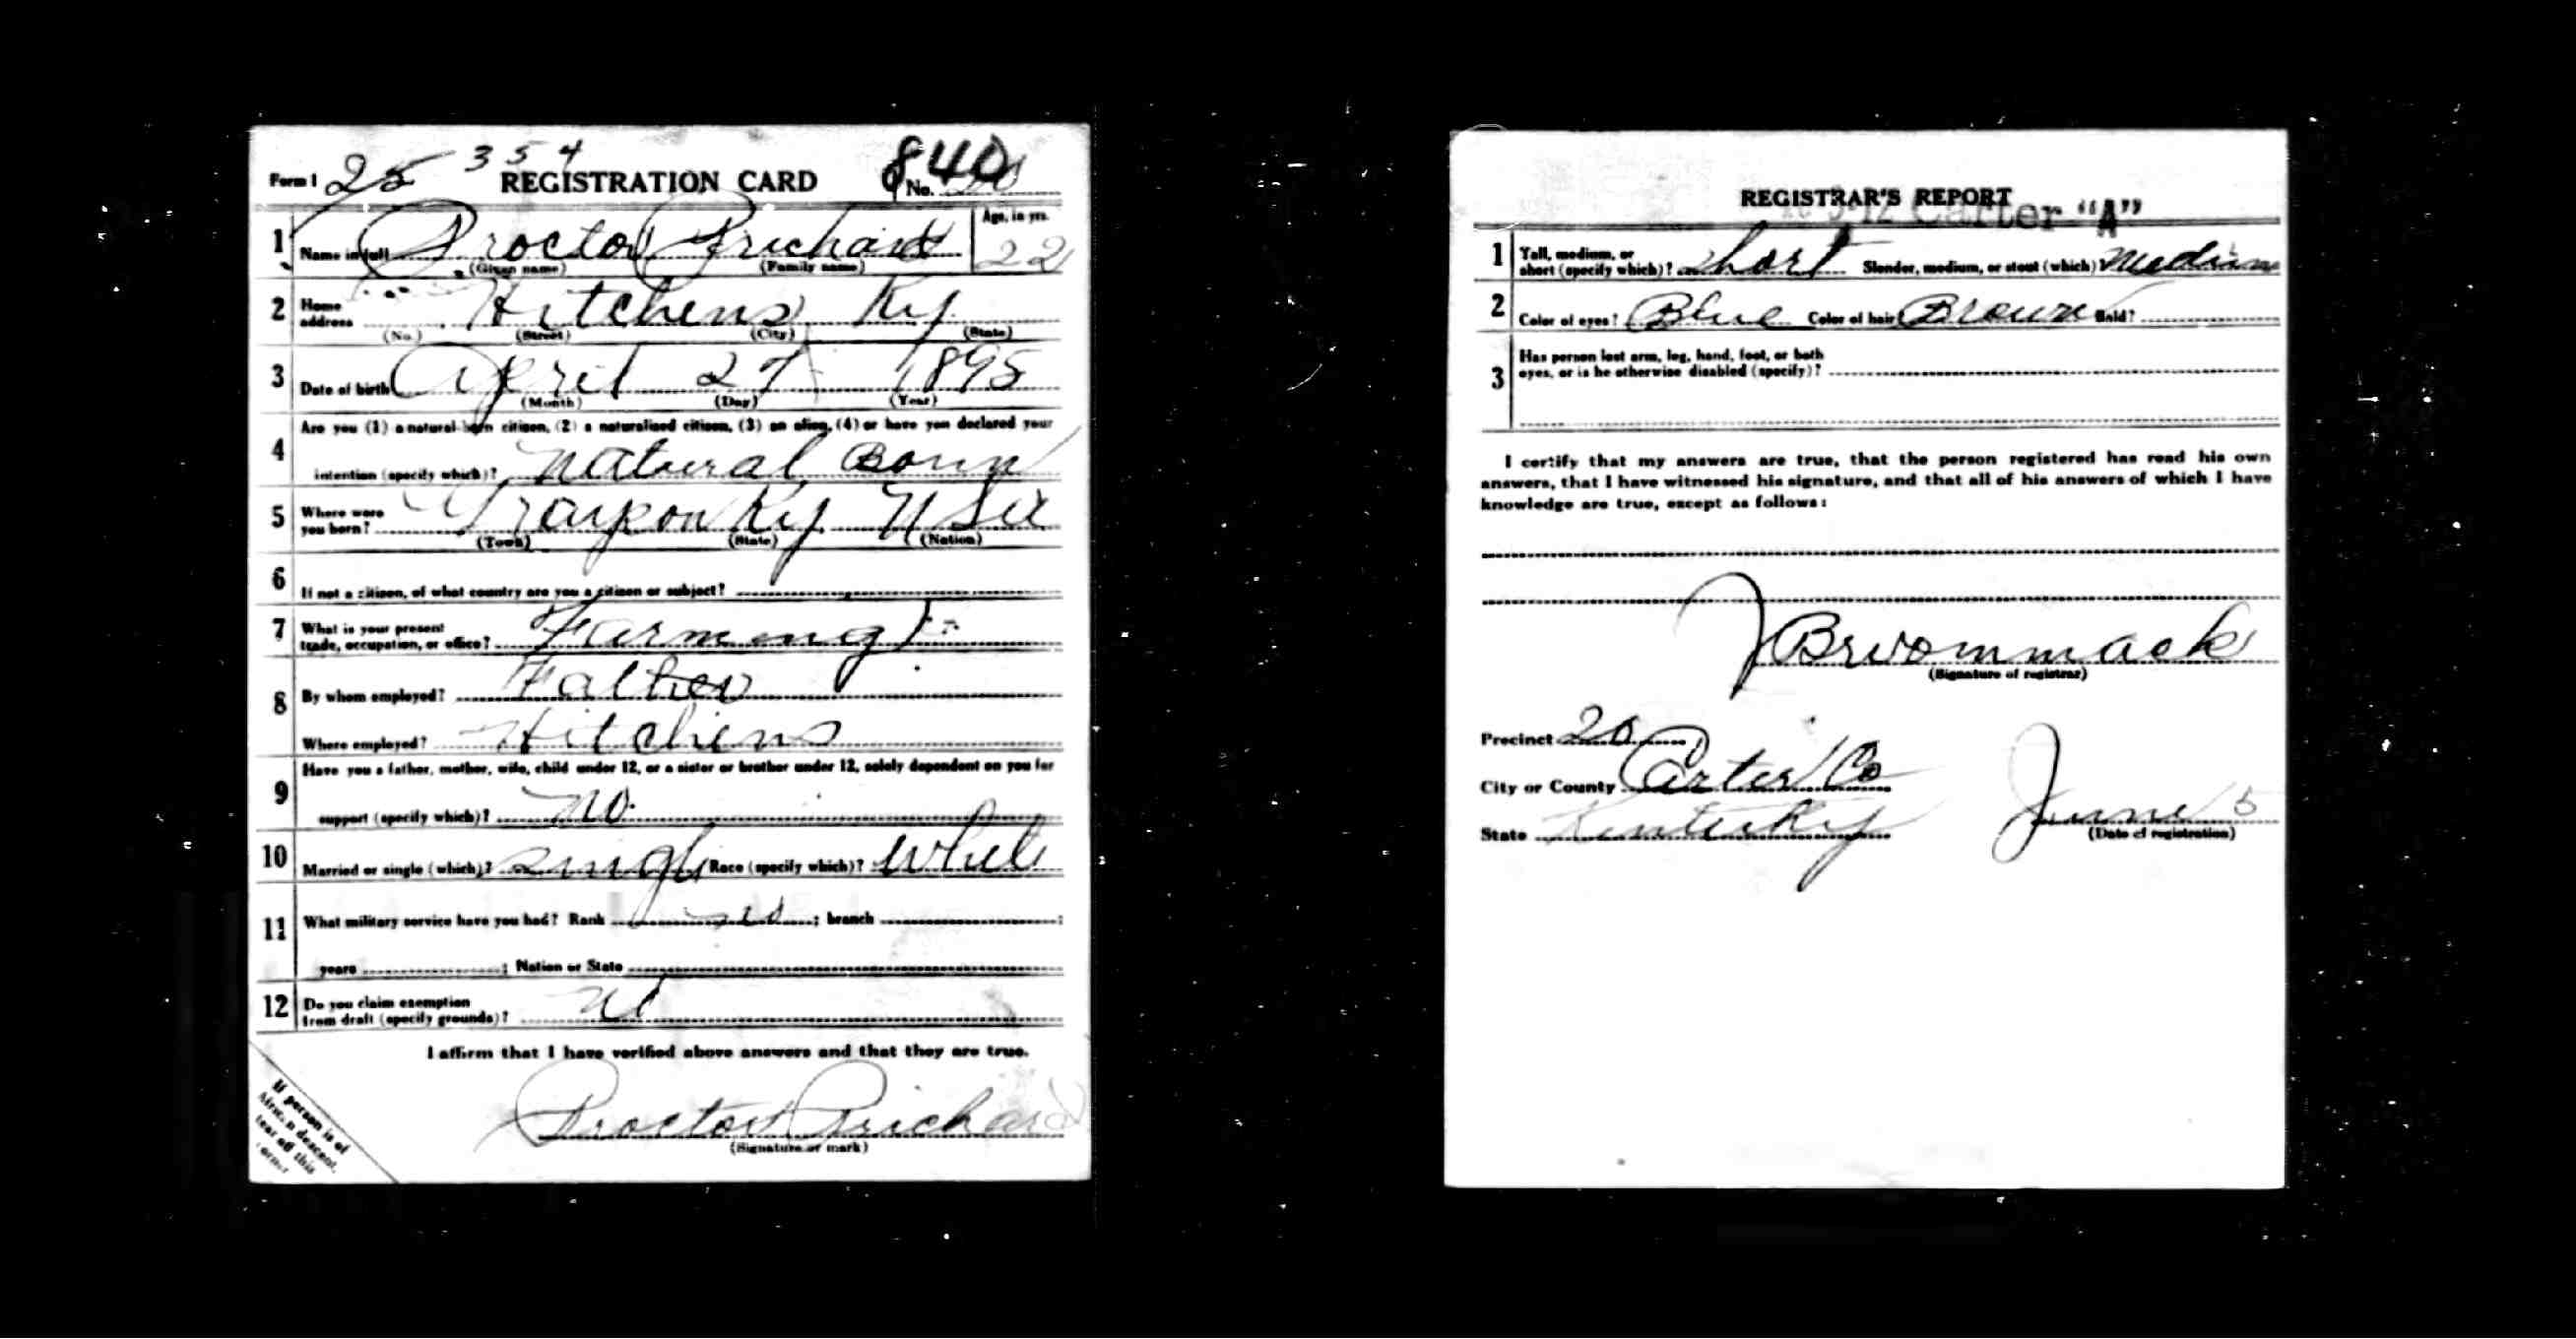 Form 1 25 354 REGISTRATION CARD No. 840
1 Name in full Proctor Prichard Age, in yrs. 22
(Given name) (Family name)
2 Home address Hitchens Ky.
(No.) (Street) (City) (State)
3 Date of birth April 27 1895
(Month) (Day) (Year)
4 Are you (1) a natural-born citizen, (2) a naturalized citizen, (3) an alien, (4) or have you declared your
intention (specify which)? Natural Born
5 Where were you born? Ky. USA
(Town) (State) (Nation)
6 If not a citizen, of what country are you a citizen or subject?
7 What is your present
trade, occupation, or office? Farmeng
8 By whom employed? Father
Where employed? Hitchins
9 Have you a father, mother, wife, child under 12, or a sister or brother under 12, solely dependent on you for
support (specify which)? No.
10 Married or single (which)? Single Race (specify which)? White
11 What military service have you had? Rank ; branch ;
years ; Nation or State
12 Do you claim exemption
from draft (specify grounds)? No
I affirm that I have verified above answers and that they are true.
Proctor Prichard
(Signature or mark)
If person is of
African descent,
tear off this
corner
REGISTRAR'S REPORT
Carter "A"
1 Tall, medium, or
short (specify which)? Short Slender, medium, or stout (which)? Medium
2 Color of eyes? Blue Color of hair Brown Bald?
3 Has person lost arm, leg, hand, foot, or both
eyes, or is he otherwise disabled (specify)?
I certify that my answers are true, that the person registered has read his own
answers, that I have witnessed his signature, and that all of his answers of which I have
knowledge are true, except as follows:
J Brwommack
(Signature of registrar)
Precinct 20
City or County Carter Co
State Kentucky June 5
(Date of registration)